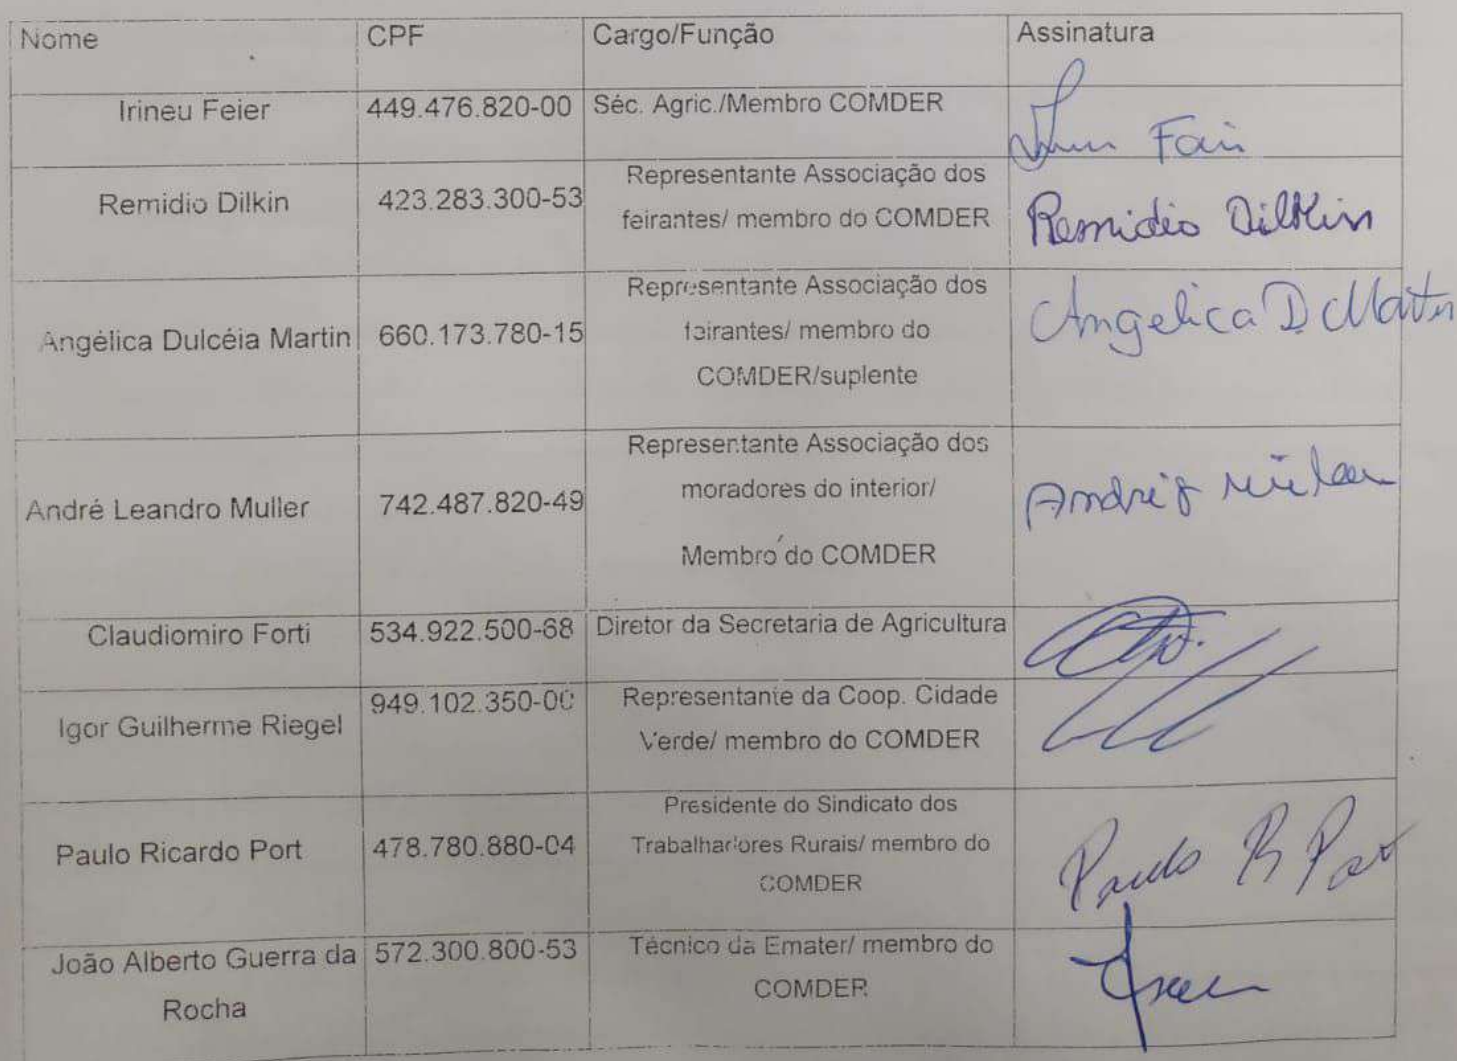 Nome CPF Cargo/Função Assinatura
Irineu Feier 449.476.820-00 Séc. Agric./Membro COMDER
Remidio Dilkin 423.283.300-53 Representante Associação dos
feirantes/ membro do COMDER Remidio Dilkin
Angélica Dulcéia Martin 660.173.780-15 Representante Associação dos
feirantes/ membro do
COMDER/suplente Angelica D. Martin
André Leandro Muller 742.487.820-49 Representante Associação dos
moradores do interior/
Membro do COMDER
Claudiomiro Forti 534.922.500-68 Diretor da Secretaria de Agricultura
Igor Guilherme Riegel 949.102.350-00 Representante da Coop. Cidade
Verde/ membro do COMDER
Paulo Ricardo Port 478.780.880-04 Presidente do Sindicato dos
Trabalhadores Rurais/ membro do
COMDER Paulo R Port
João Alberto Guerra da 572.300.800-53 Técnico da Emater/ membro do
Rocha COMDER